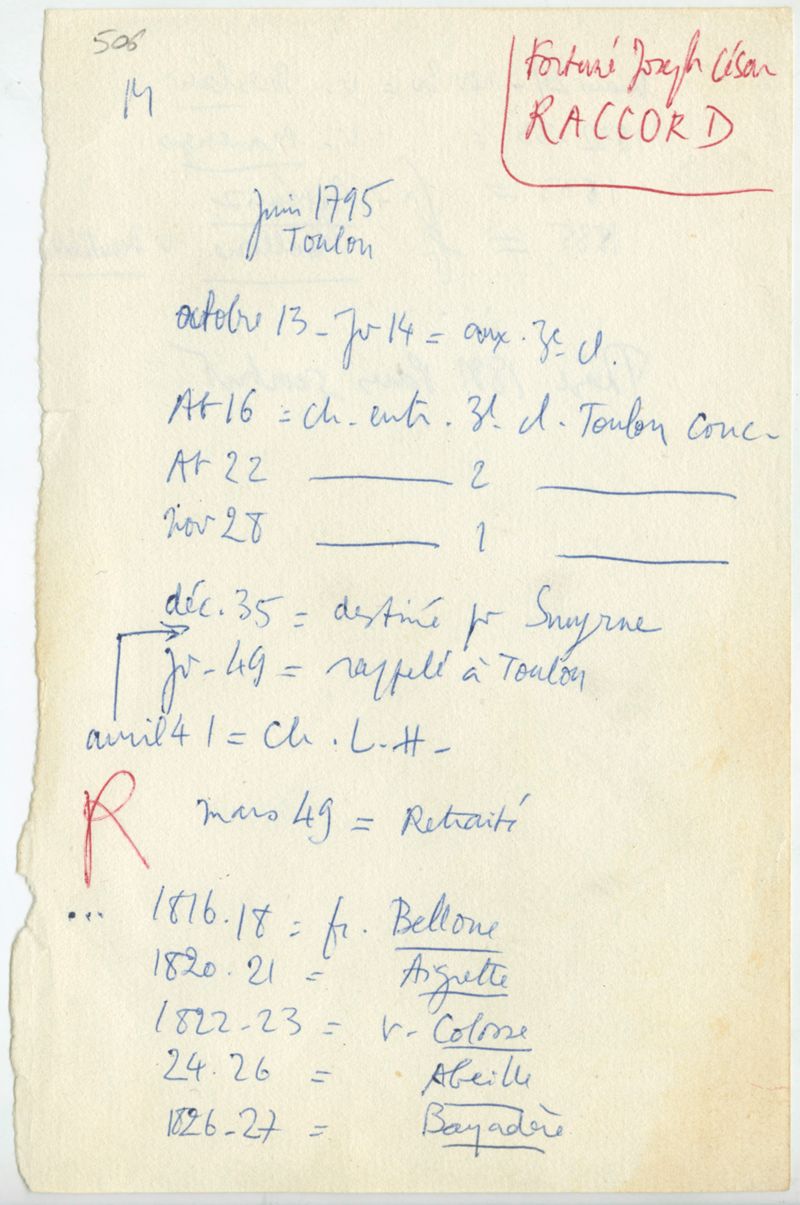 506
M
Fortuné Joseph César
RACCORD
Juin 1795
Toulon
octobre 13 - Jv 14 = aux. 3e cl.
At 16 = ch. entr. 3e cl. Toulon conc-
At 22 — 2 —
Nov 28 — 1 —
déc. 35 = destiné pr Smyrne
Jv - 49 = rappelé à Toulon
avril 41 = Ch. L. H-
R
mars 49 = Retraité
... 1816.18 = fr. Bellone
1820.21 = Aigrette
1822-23 = v- Colosse
24.26 = Abeille
1826-27 = Bayadère